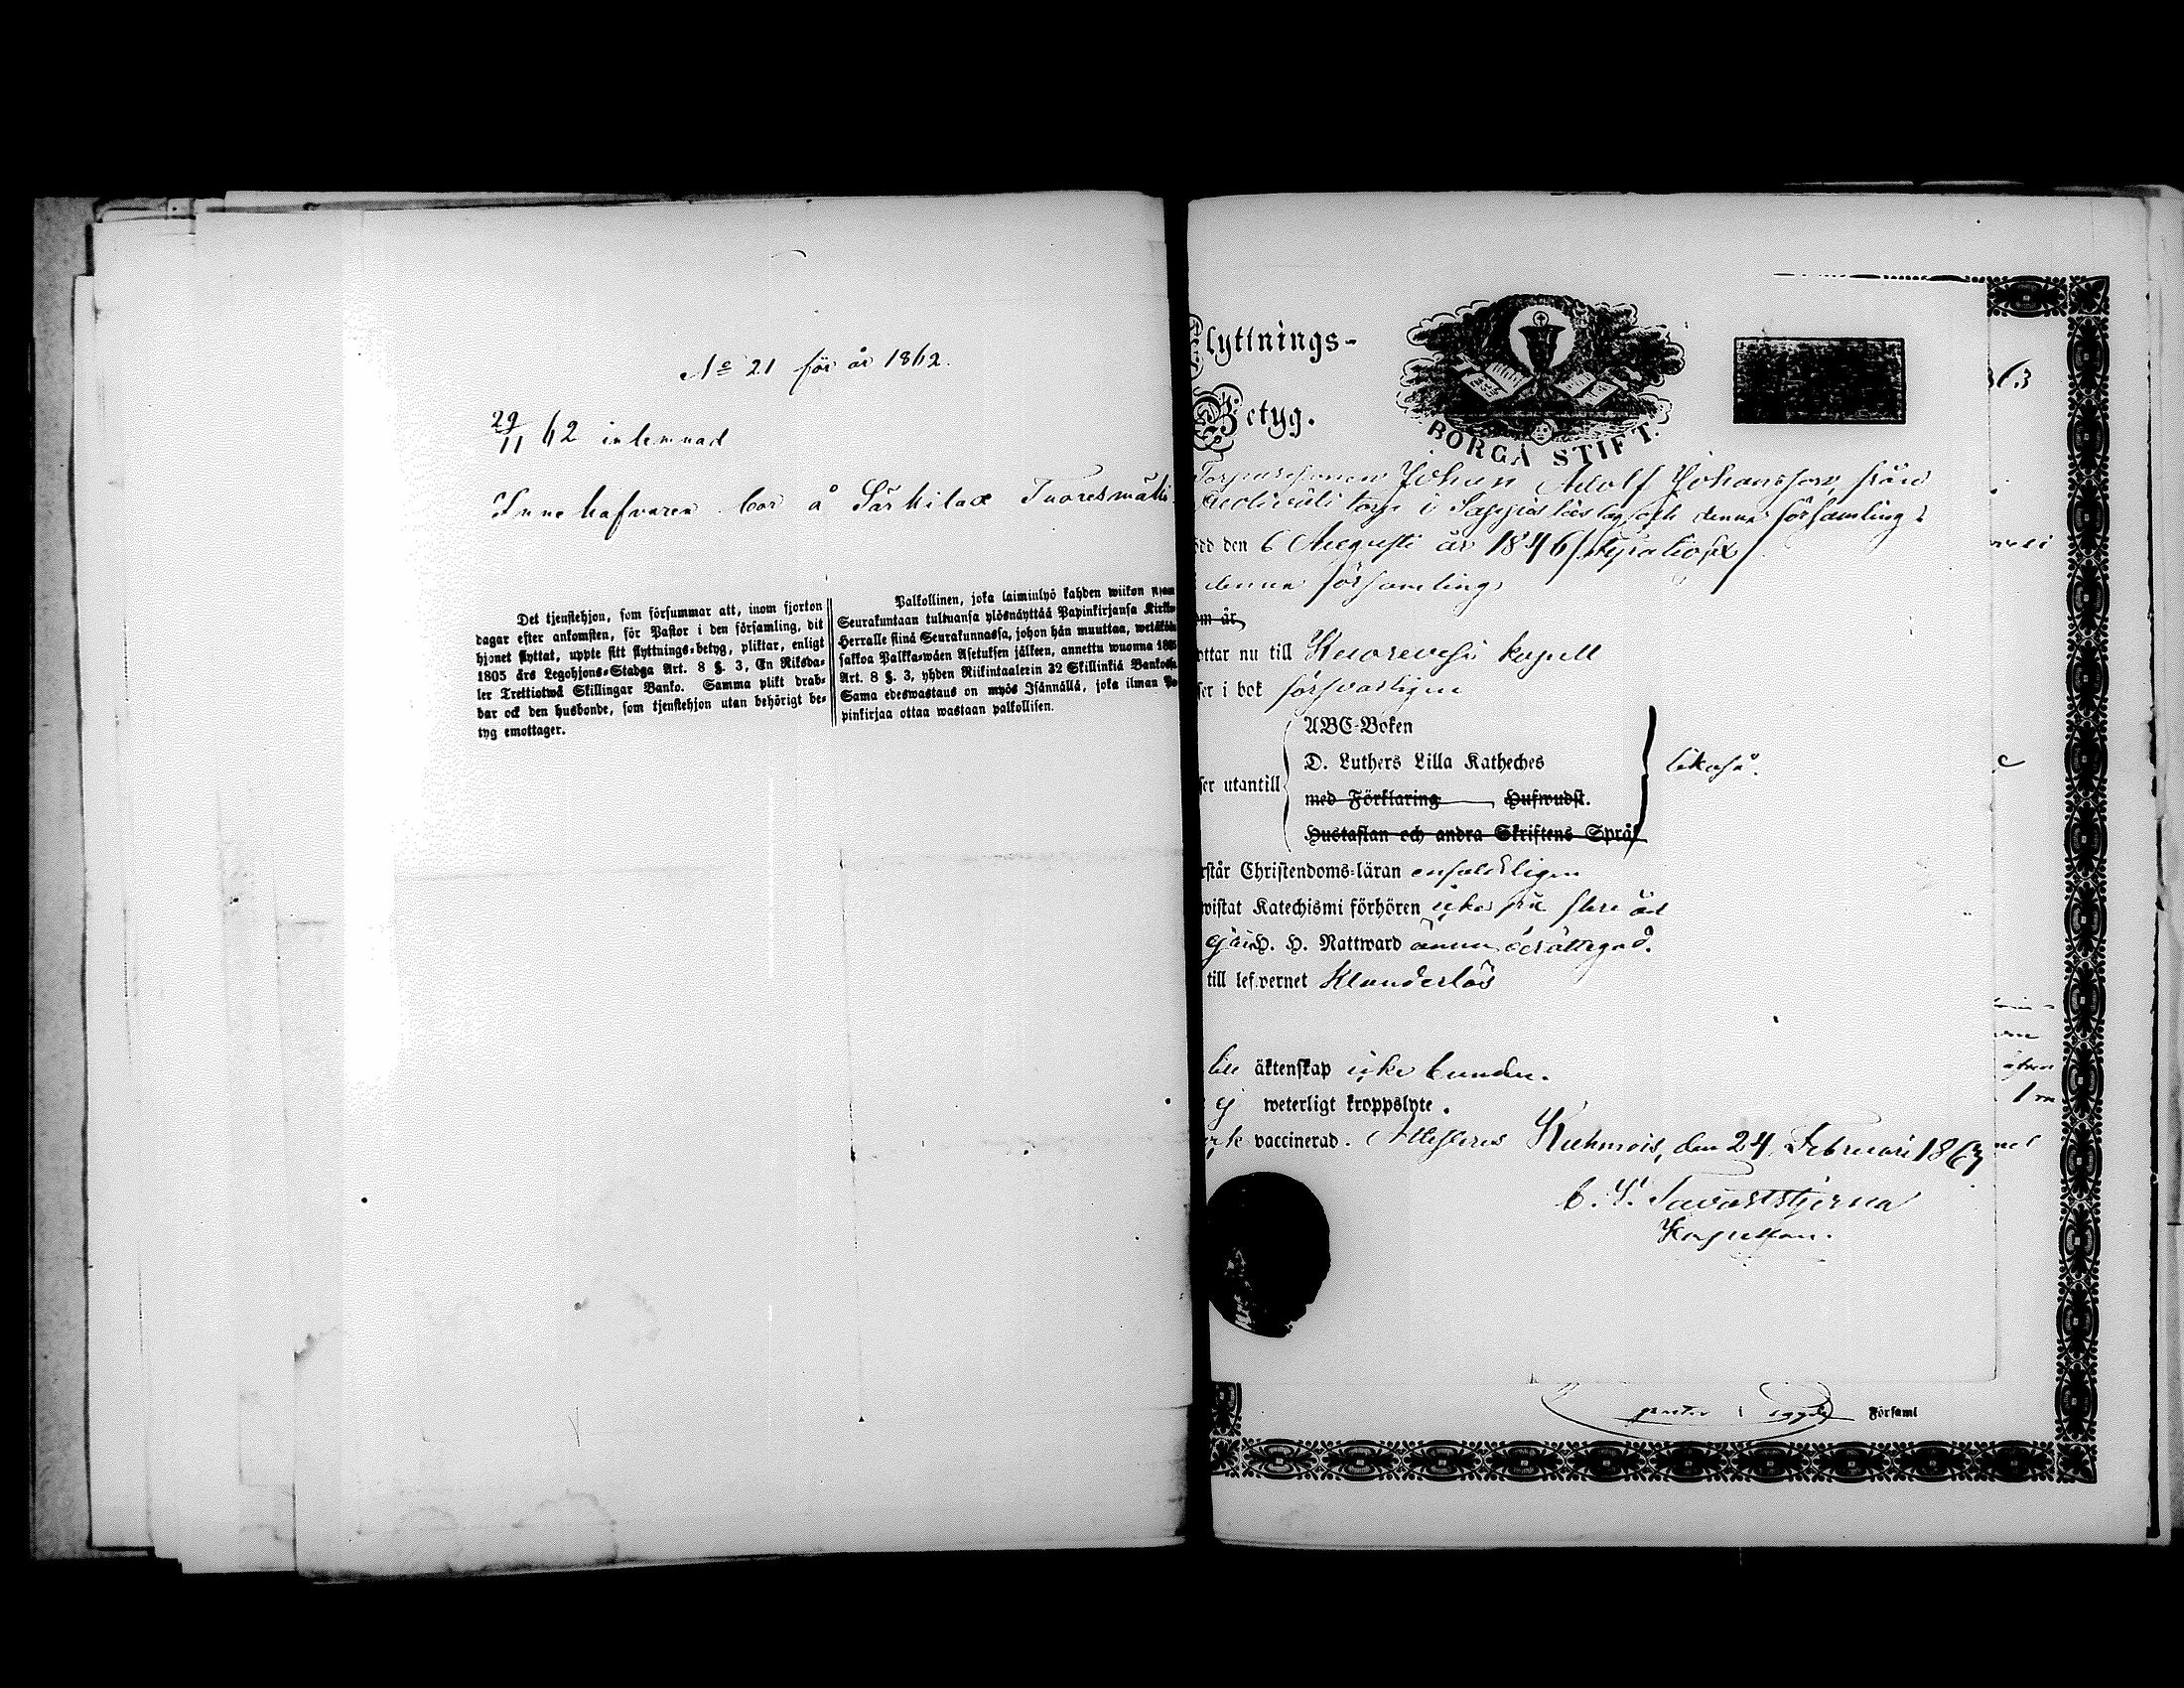 No 21 för år 1862.
29/11 62 inlemnad
Innehafvaren bor å Särkilax Tuoresmäki
Det tjenstehjon, som försummar att, inom fjorton
dagar efter ankomsten, för Pastor i den församling, dit
hjonet flyttat, uppte sitt flyttnings-betyg, pliktar, enligt
1805 års Legohjons-Stadga Art. 8 §. 3, En Riksda-
ler Trettiotwå Skillingar Banko. Samma plikt drab-
bar ock den husbonde, som tjenstehjon utan behörigt be-
tyg emottager.
Palkollinen, joka laiminlyö kahden wiikon
Seurakuntaan tultuansa ylösnäyttää Papinkirjansa Kirkko-
Herralle siinä Seurakunnassa, johon hän muuttaa, wetäköön
sakkoa Palkka-wäen Asetuksen jälkeen, annettu wuonna 1805
Art. 8 §. 3, yhden Riikintaalerin 32 Skillinkiä Bankossa
Sama edeswastaus on myös Isännällä, joka ilman Pa-
pinkirjaa ottaa wastaan palkollisen.
Flyttnings-
Betyg.
BORGÅ STIFT.
Johan Adolf Johansson, från
torp i denna församling;
ödd den 6 Augusti år 1846
denna församling
em år
ottar nu till Keurevesi kapell
ser i bok försvarligen
ser utantill
ABC-Boken
D. Luthers Lilla Katheches
med Förklaring Hufwudst.
Hustaflan och andra Skriftens Språk
likaså.
rstår Christendoms-läran enfaldeligen
wistat Katechismi förhören icke på flere år
H. H. Nattward ännu berättigad.
till lefvernet Klanderlös
till äktenskap icke bunden.
ej weterligt kroppslyte.
vaccinerad. Attesteras Kuhmois, den 24 Februari 1863
C. G. Tavaststjerna
Kapellan.
pastor i Församl